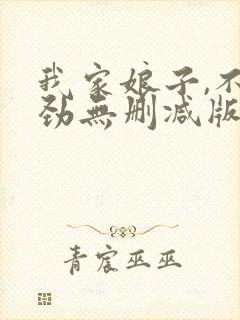 我家娘子,不
劲無删减版
青宸巫巫